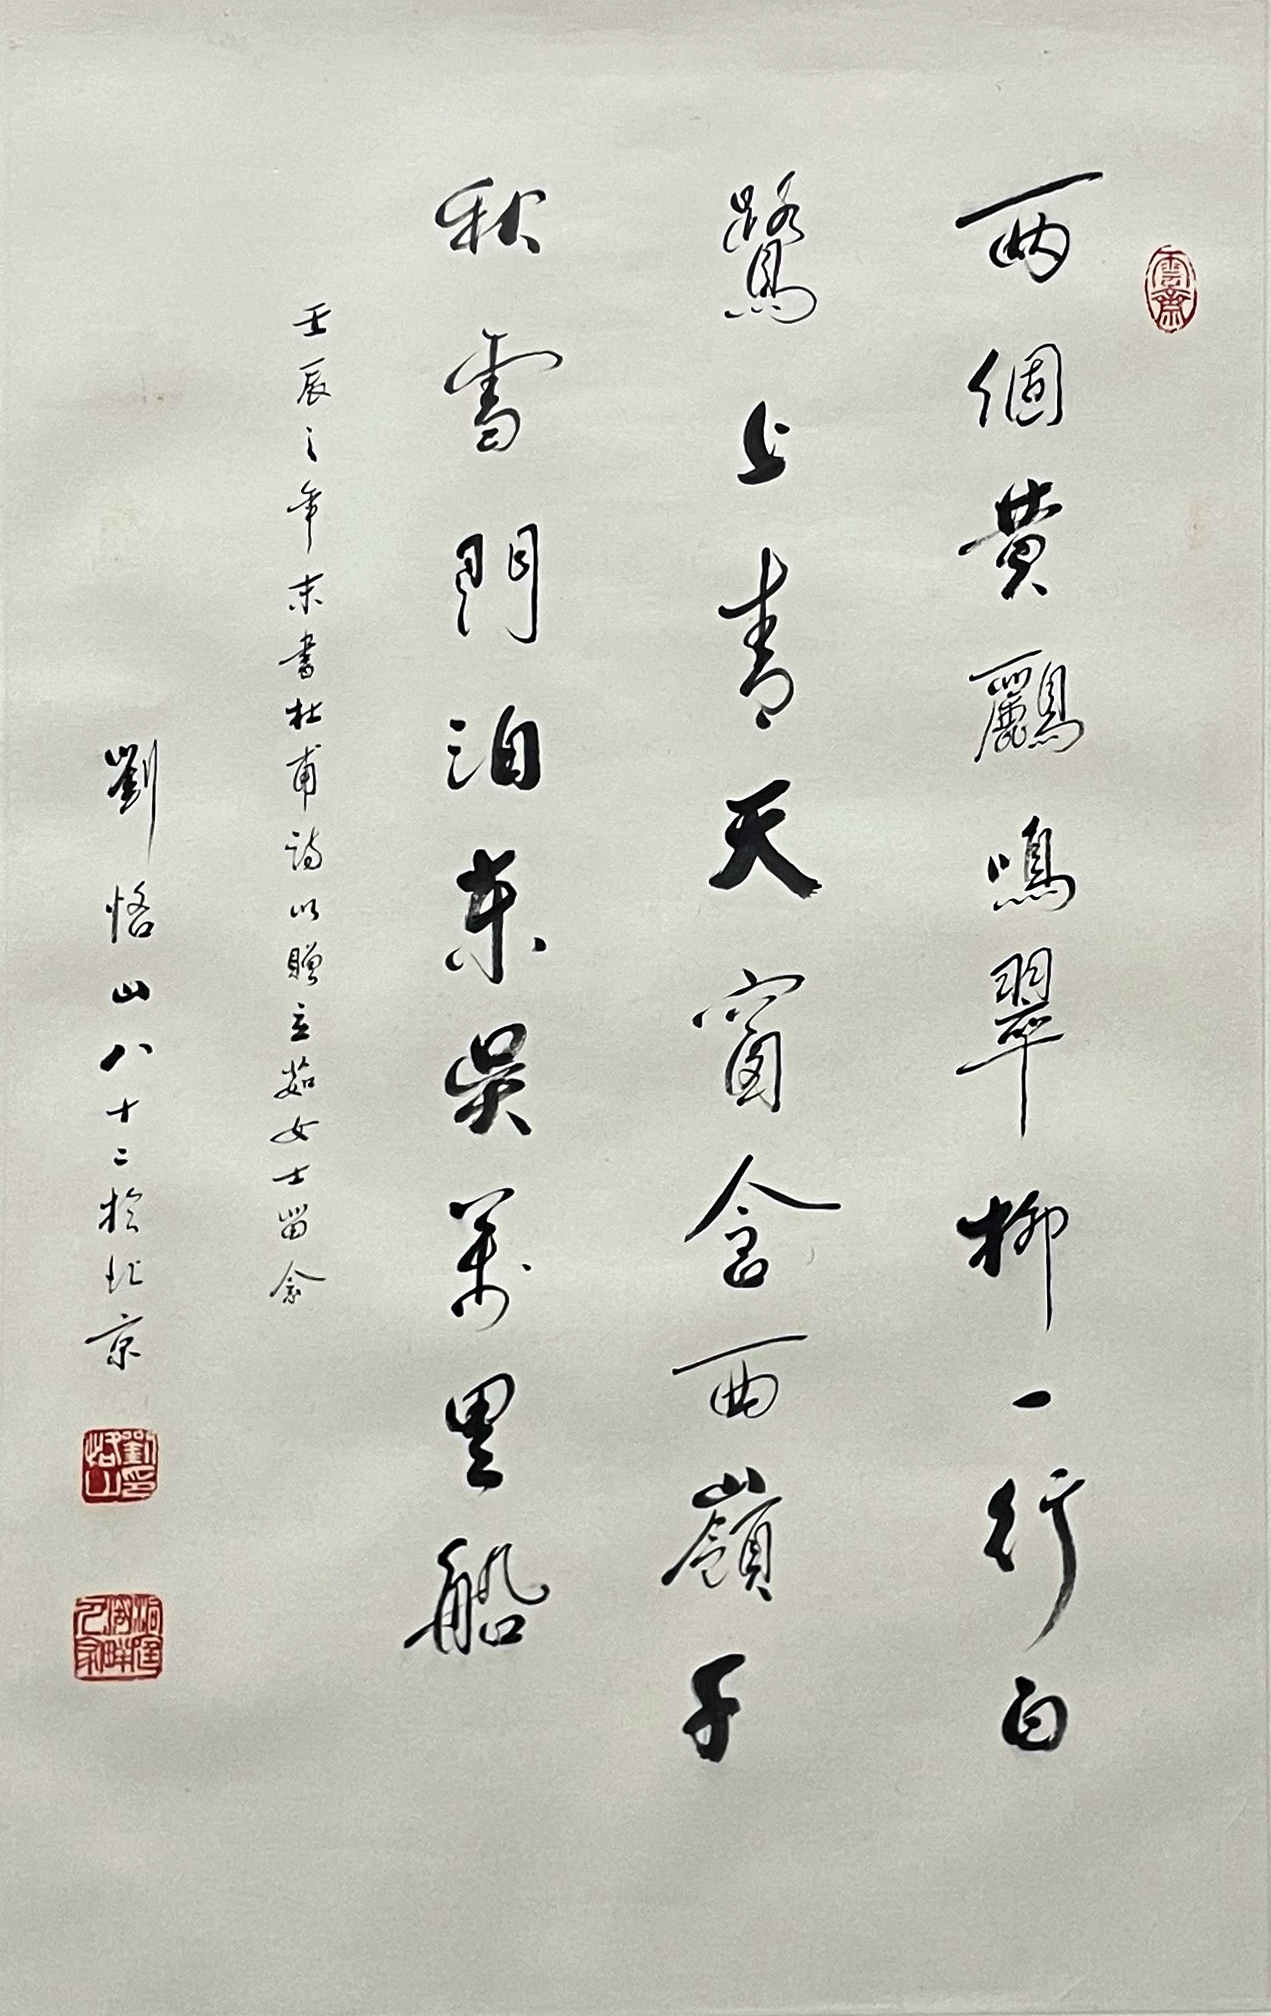 兩個黄鸝鳴翠柳一行白
鷺上青天窗含西嶺千
秋雪門泊东吴萬里船
壬辰之年末書杜甫詩以贈立茹女士留念
劉恪山八十二於北京
雲齋
劉印恪山